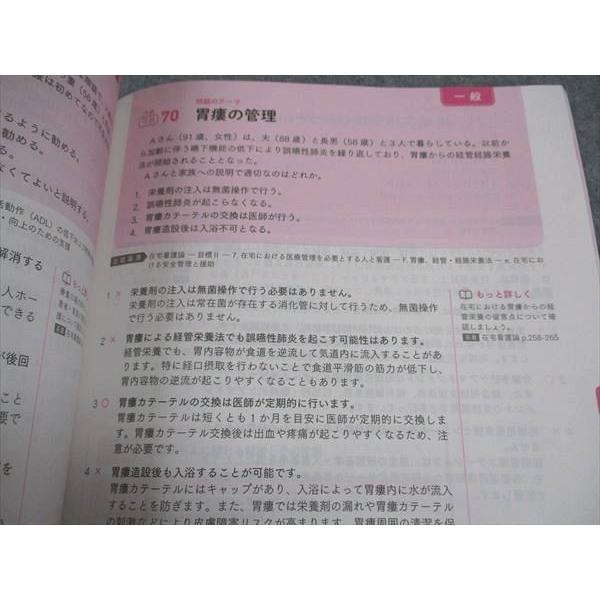 一般
問題のテーマ
70 胃瘻の管理
Aさん（91歳、女性）は、夫（88歳）と長男（58歳）と3人で暮らしている。以前か
ら加齢に伴う嚥下機能の低下により誤嚥性肺炎を繰り返しており、胃瘻からの経管経腸栄養
法が開始されることとなった。
Aさんと家族への説明で適切なのはどれか。
1. 栄養剤の注入は無菌操作で行う。
2. 誤嚥性肺炎が起こらなくなる。
3. 胃瘻カテーテルの交換は医師が行う。
4. 胃瘻造設後は入浴不可となる。
出題基準 在宅看護論 ― 目標Ⅱ ― 7. 在宅における医療管理を必要とする人と看護 ― F. 胃瘻、経管・経腸栄養法 ― a. 在宅にお
ける安全管理と援助
1 × 栄養剤の注入は無菌操作で行う必要はありません。
栄養剤の注入は常在菌が存在する消化管に対して行うため、無菌操作
で行う必要はありません。
2 × 胃瘻による経管栄養法でも誤嚥性肺炎を起こす可能性はあります。
経管栄養でも、胃内容物が食道を逆流して気道内に流入することがあ
ります。特に経口摂取を行わないことで食道平滑筋の筋力が低下し、
胃内容物の逆流が起こりやすくなることもあります。
3 ○ 胃瘻カテーテルの交換は医師が定期的に行います。
胃瘻カテーテルは短くとも1か月を目安に医師が定期的に交換しま
す。胃瘻カテーテル交換後は出血や疼痛が起こりやすくなるため、注
意が必要です。
4 × 胃瘻造設後も入浴することが可能です。
胃瘻カテーテルにはキャップがあり、入浴によって胃瘻内に水が流入
することを防ぎます。また、胃瘻では栄養剤の漏れや胃瘻カテーテル
の刺激などにより皮膚障害リスクが高まります。胃瘻周囲の清潔を保
もっと詳しく
在宅における胃瘻からの経
管栄養の留意点について確
認しましょう。
在宅看護論 p.258-265
るように勧める。
勧める。
なくてよいと説明する。
活動作（ADL）の低下
・向上のための支援
解消する
人ホー
できる
が後回
こと
要で
を